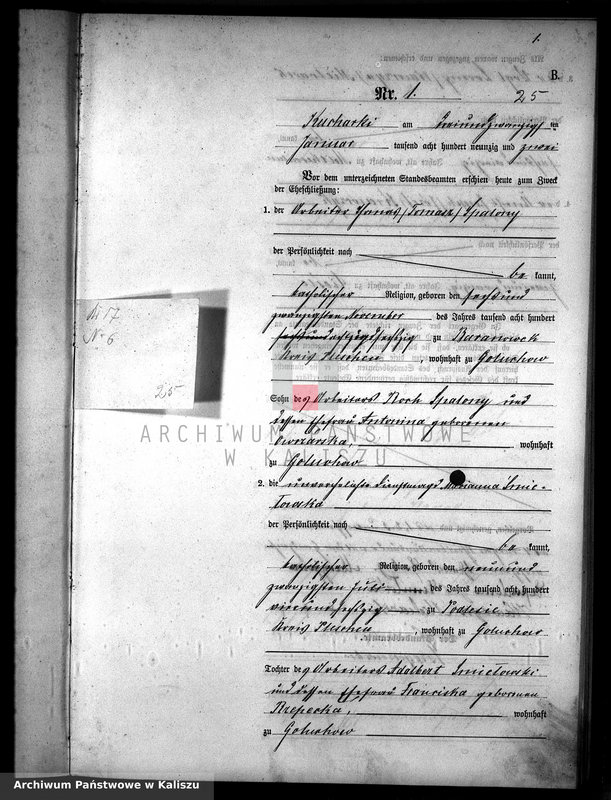 1.
B.
Nr. 1.
25
Kucharki am dreiundzwanzigsten
Januar tausend acht hundert neunzig und zwei
Vor dem unterzeichneten Standesbeamten erschien heute zum Zweck
der Eheschließung:
1. der Arbeiter Thomas /Tomasz/ Spalony
der Persönlichkeit nach
be kannt,
katholischer Religion, geboren den sechsund
zwanzigsten November des Jahres tausend acht hundert
sechzig zu
Kreis Pleschen, wohnhaft zu Goluchow
Sohn des Arbeiters Roch Spalony und
dessen Ehefrau Antonina geborenen
wohnhaft
zu Goluchow
2. die unverehelichte Dienstmagd Marianna Smie-
lowska
der Persönlichkeit nach
be kannt,
katholischer Religion, geboren den neunund
zwanzigsten Juli des Jahres tausend acht hundert
vierundsechzig zu Podlesie
Kreis Pleschen, wohnhaft zu Goluchow
Tochter des Arbeiters Adalbert Smielowski
und dessen Ehefrau Franciska geborenen
Rzepecka, wohnhaft
zu Goluchow
No 17
No 6
25
ARCHIWUM PAŃSTWOWE
W KALISZU
Archiwum Państwowe w Kaliszu